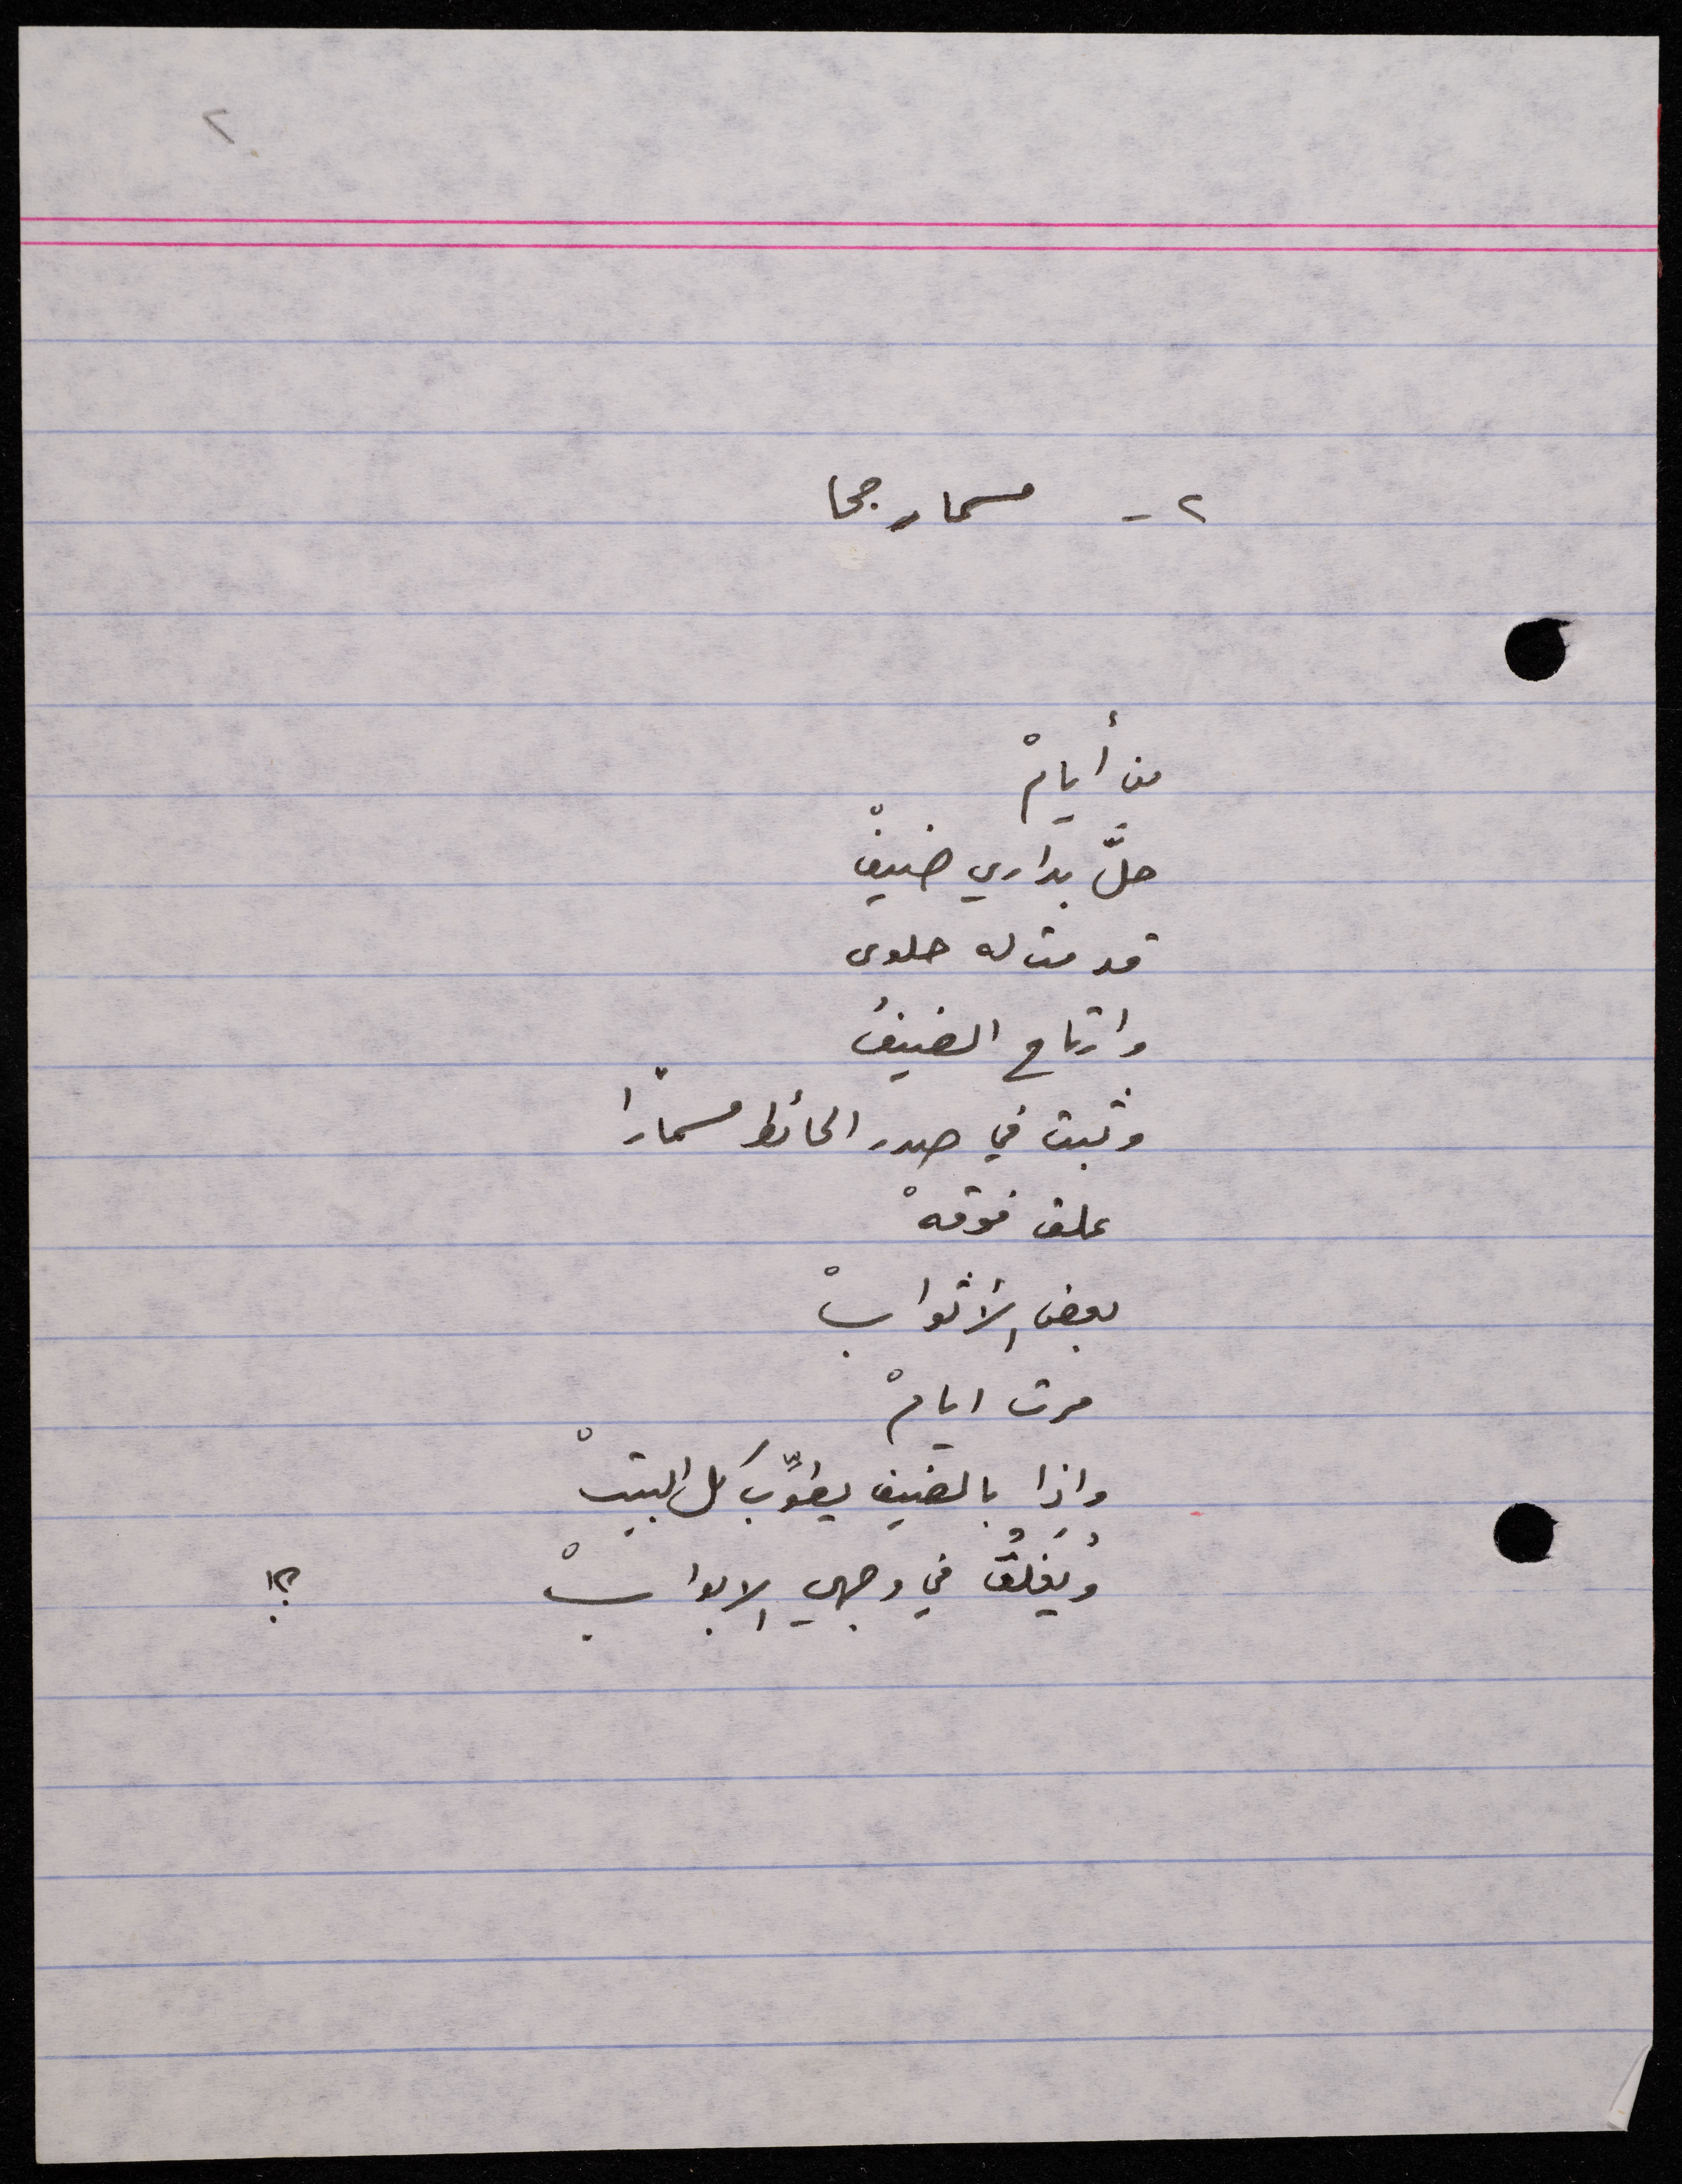 ٢
٢- مسمار جحا
من أيامْ
حلَّ بداري ضيفْ
قدمت له حلوى
وارتاح الضيفُ
وثبت في صدر الحائط مسمارًا
علق فوقهْ
بعض الأثوابْ
مرت ايامْ
واذا بالضيف يطوِّبُ كل البيتْ
ويُغلقُ في وجهي الابوابْ ؟!